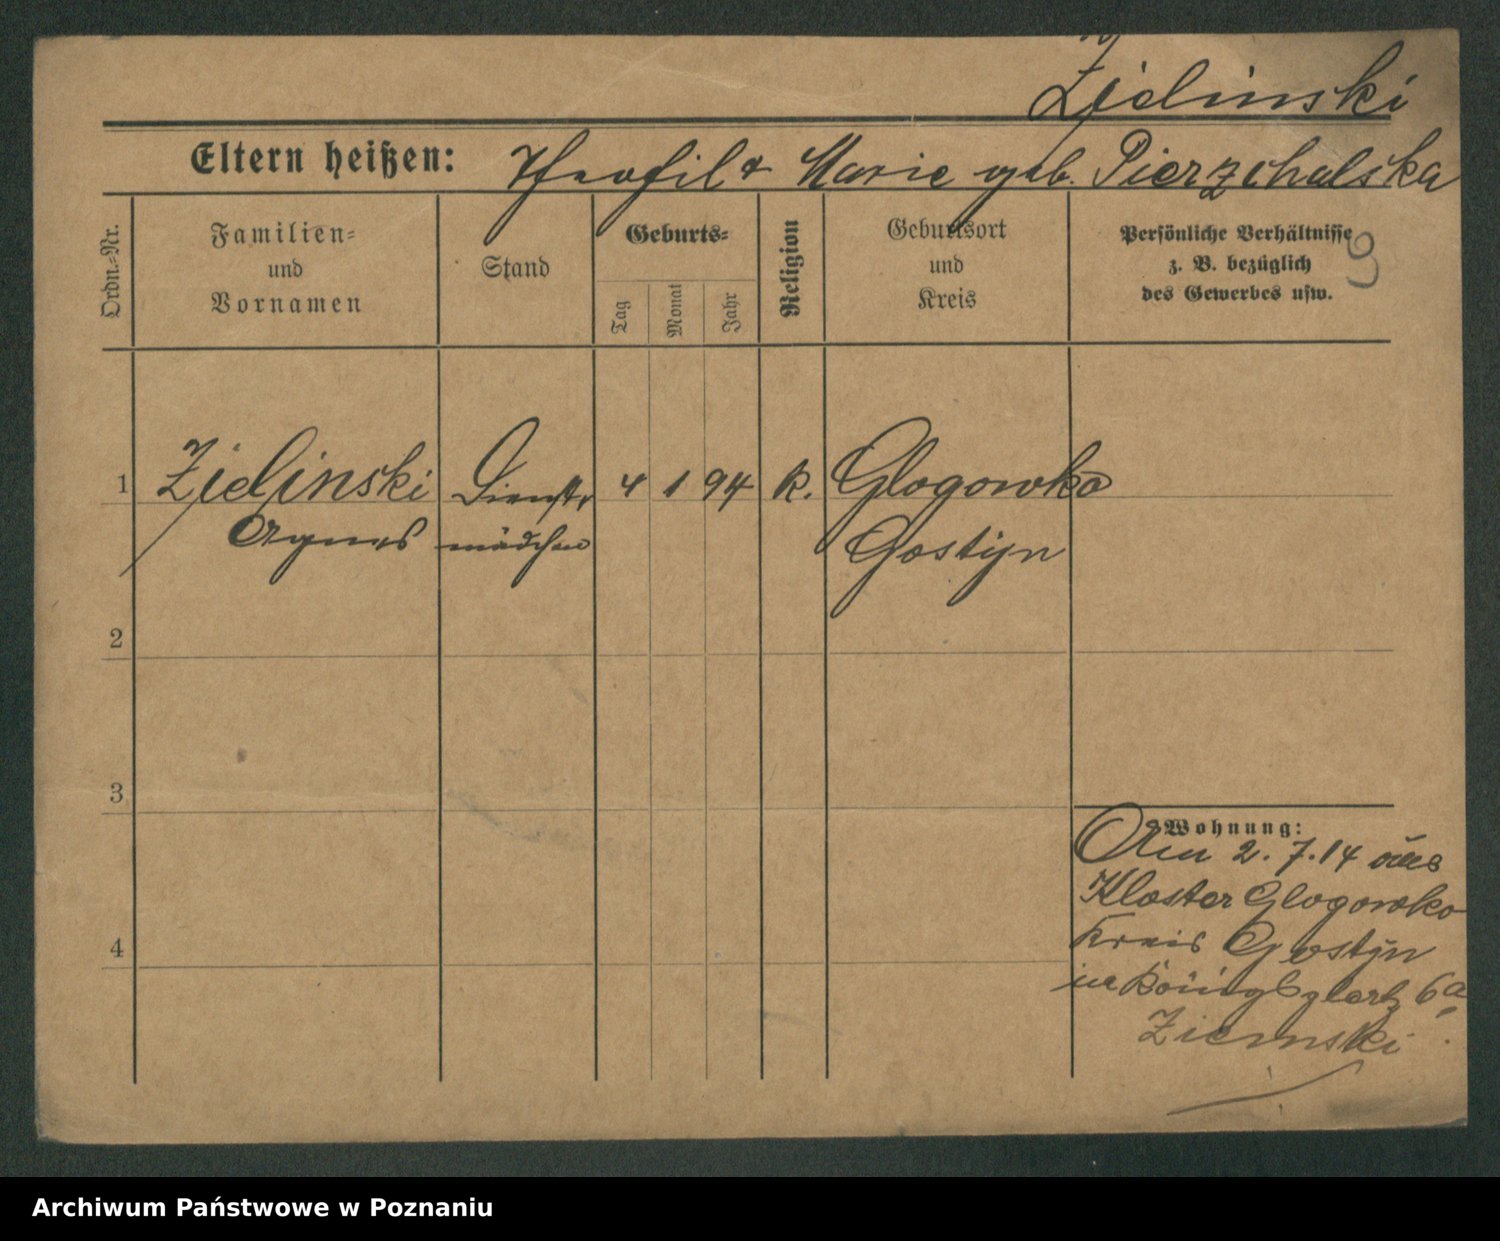 Zielinski
Eltern heißen: Theofil & Marie geb. Pierzchalska
Ordn.=Nr.
Familien=
und
Vornamen
Stand
Geburts=
Tag
Monat
Jahr
Religion
Geburtsort
und
Kreis
Persönliche Verhältnisse
z. B. bezüglich
des Gewerbes usw.
9
1 Zielinski Dienst= 4 1 94 k. Glogowko
Agnes mädchen Gostyn
2
3
4
Wohnung:
Am 2.7.14 aus
Kloster Glogowko
Kreis Gostyn
in Königsplatz 6a
Ziemski
Archiwum Państwowe w Poznaniu